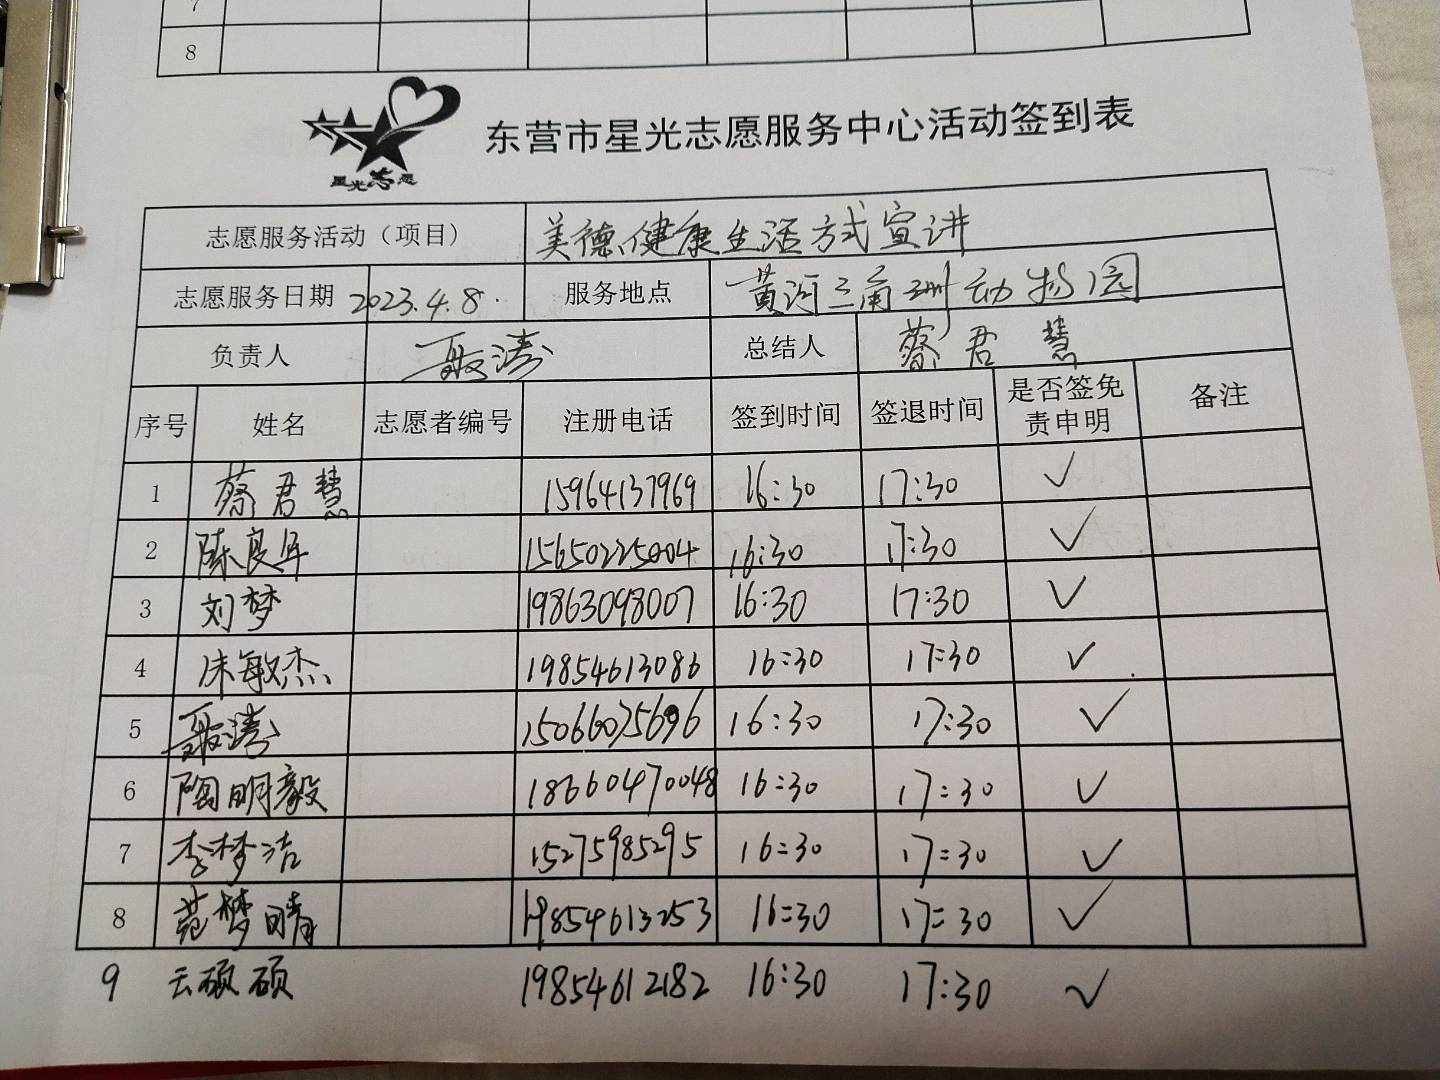 7
8
星光志愿
东营市星光志愿服务中心活动签到表
志愿服务活动（项目） 美德健康生活方式宣讲
志愿服务日期 2023.4.8. 服务地点 黄河三角洲动物园
负责人 聂涛 总结人 蔡君慧
序号 姓名 志愿者编号 注册电话 签到时间 签退时间 是否签免责申明 备注
1 蔡君慧 15964137969 16:30 17:30 ✓
2 陈良军 15650225004 16:30 17:30 ✓
3 刘梦 19863098007 16:30 17:30 ✓
4 朱敏杰 19854613086 16:30 17:30 ✓
5 聂涛 15066075696 16:30 17:30 ✓
6 陶明毅 18660470048 16:30 17:30 ✓
7 李梦洁 15275985295 16:30 17:30 ✓
8 范梦晴 19854613253 16:30 17:30 ✓
9 云硕硕 19854612182 16:30 17:30 ✓